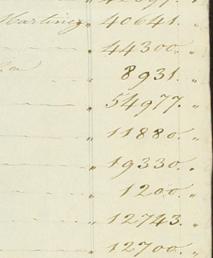 Harting „ 40641. „
„ 44300. „
„ 8931. „
„ 54977. „
„ 11880. „
„ 19330. „
„ 1200. „
„ 12743. „
„ 12700. „